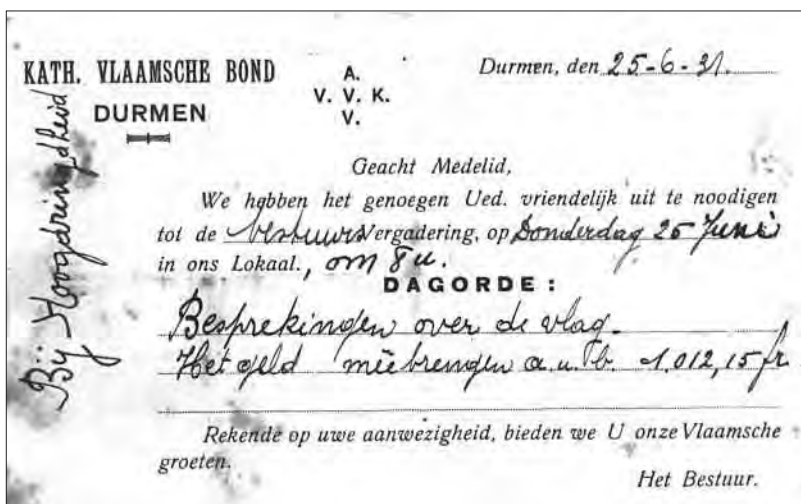 KATH. VLAAMSCHE BOND
DURMEN
A.
V. V. K.
V.
Durmen, den 25-6-31.
Bij Hoogdringdheid
Geacht Medelid,
We hebben het genoegen Ued. vriendelijk uit te noodigen
tot de bestuursvergadering, op Donderdag 25 Juni
in ons Lokaal., om 8 u.
DAGORDE :
Besprekingen over de vlag.
Het geld meêbrengen a.u.b. 1.012,15 fr
Rekende op uwe aanwezigheid, bieden we U onze Vlaamsche
groeten.
Het Bestuur.